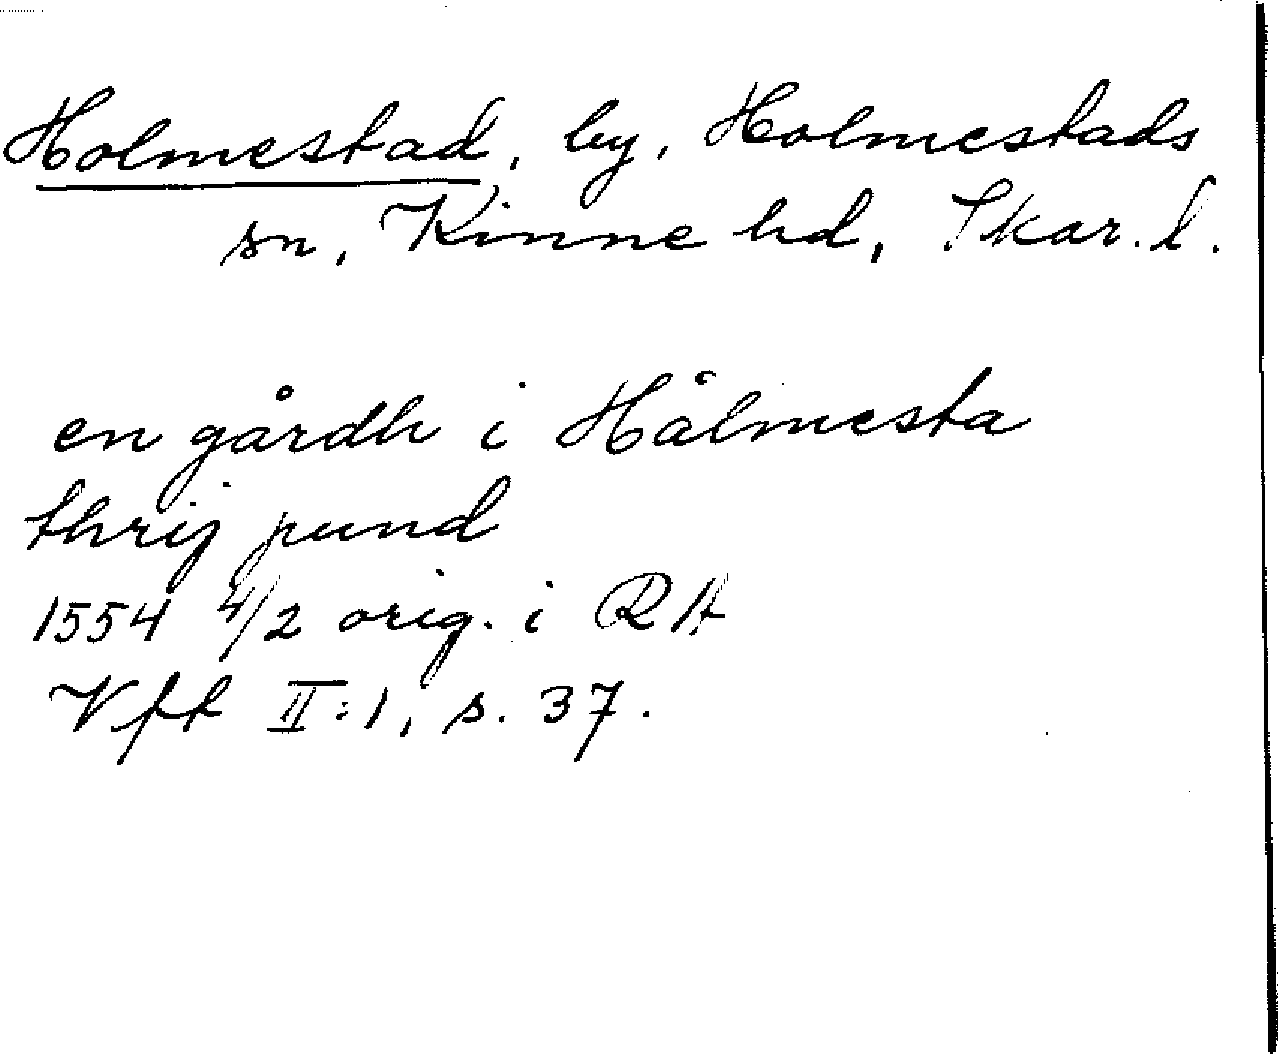 Holmestad, by, Holmestads
sn, Kinne hd, Skar. l.
en gårdh i Hålmesta
thrij pund
1554 4/2 orig. i RA
Vfft II:1, s. 37.